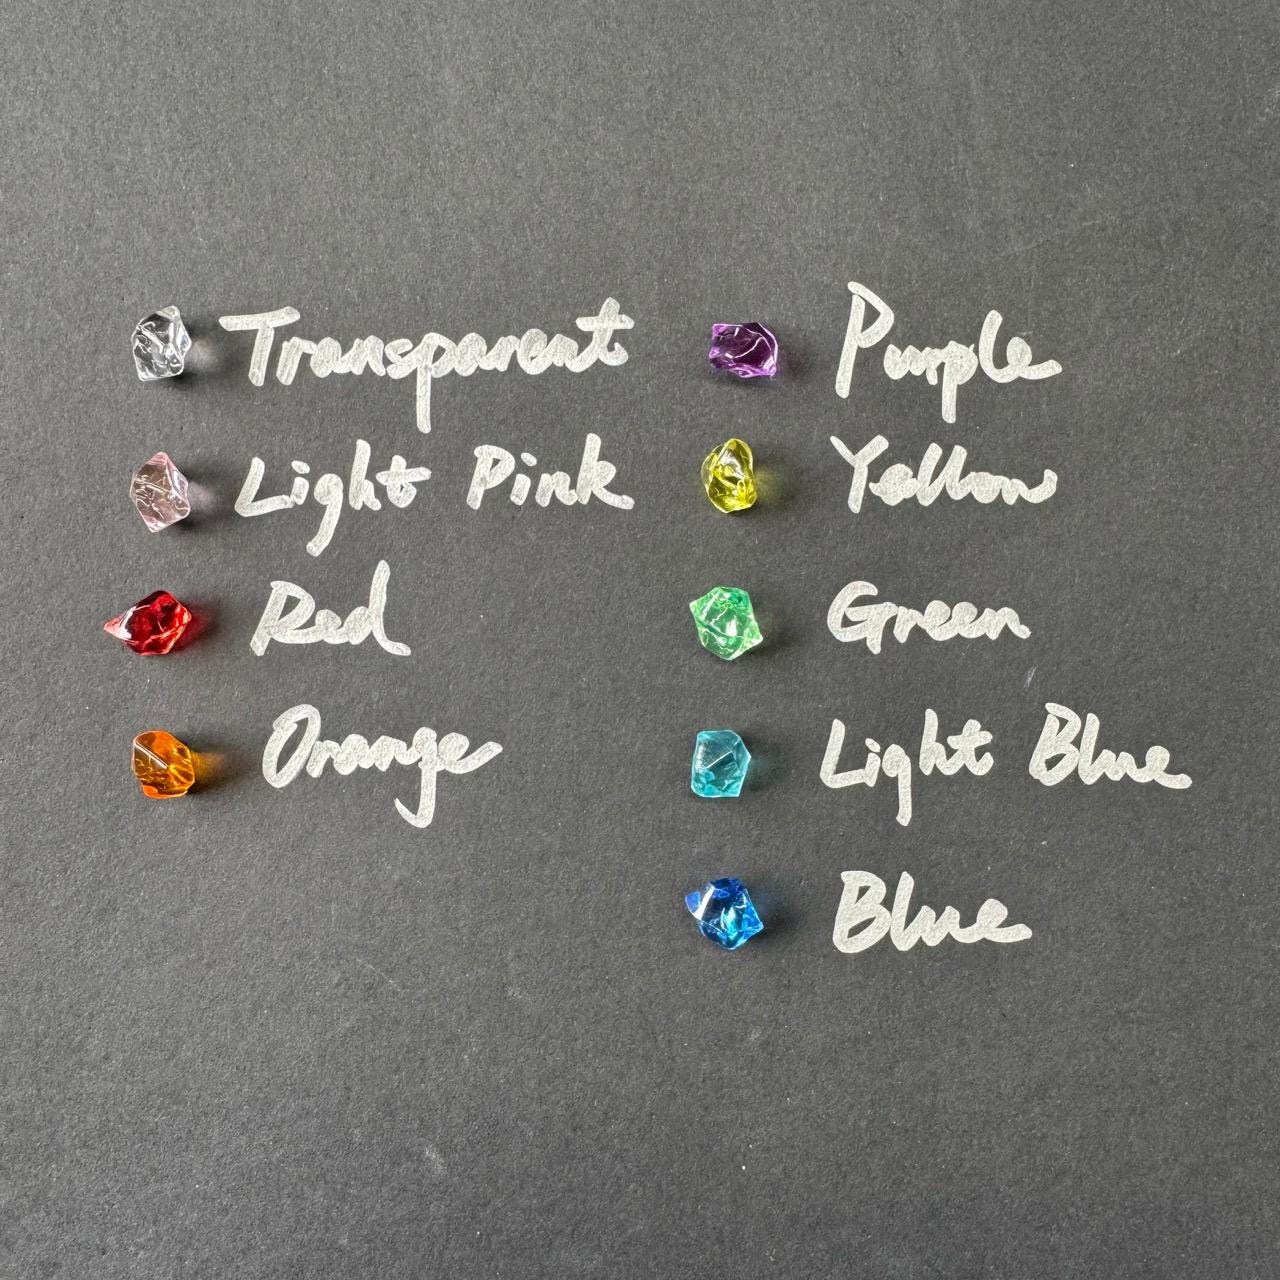 Transparent
Light Pink
Red
Orange
Purple
Yellow
Green
Light Blue
Blue